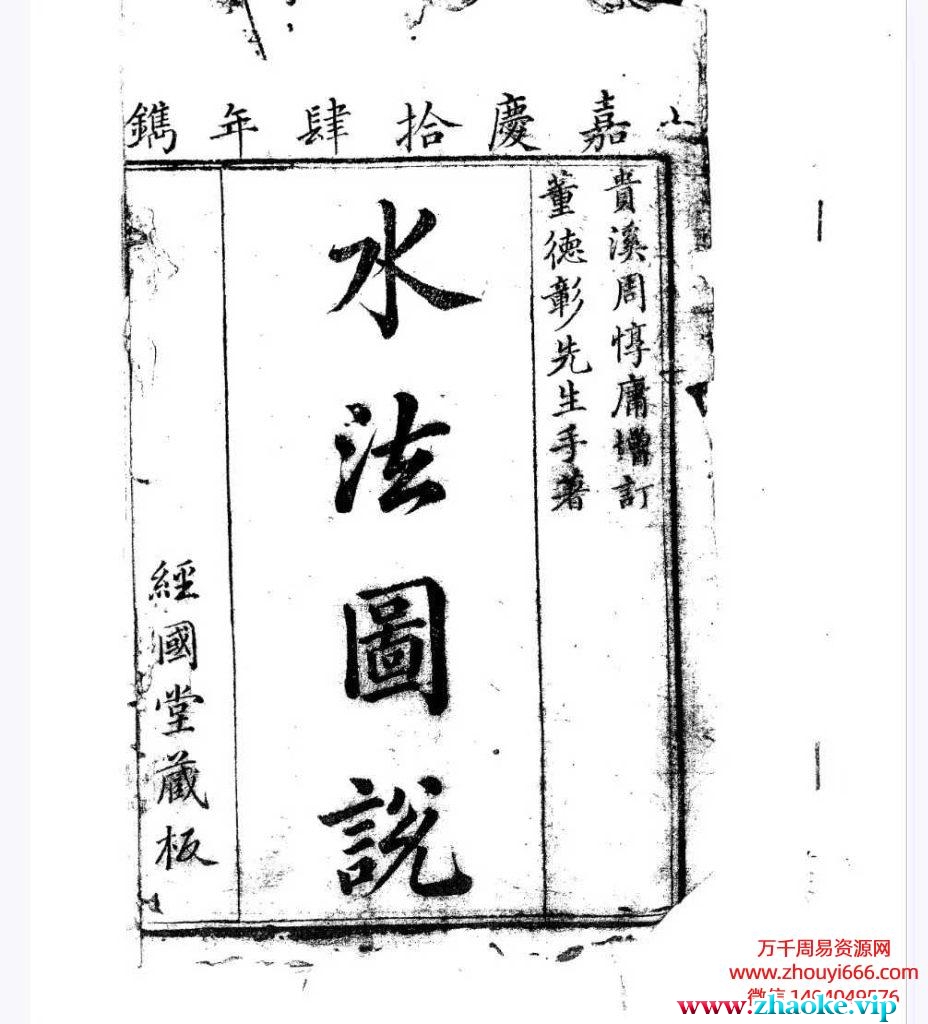 嘉慶拾肆年鐫
貴溪周惇庸增訂
董德彰先生手著
水法圖說
經國堂藏板
万千周易资源网
www.zhouyi666.com
微信1494049576
www.zhaoke.vip